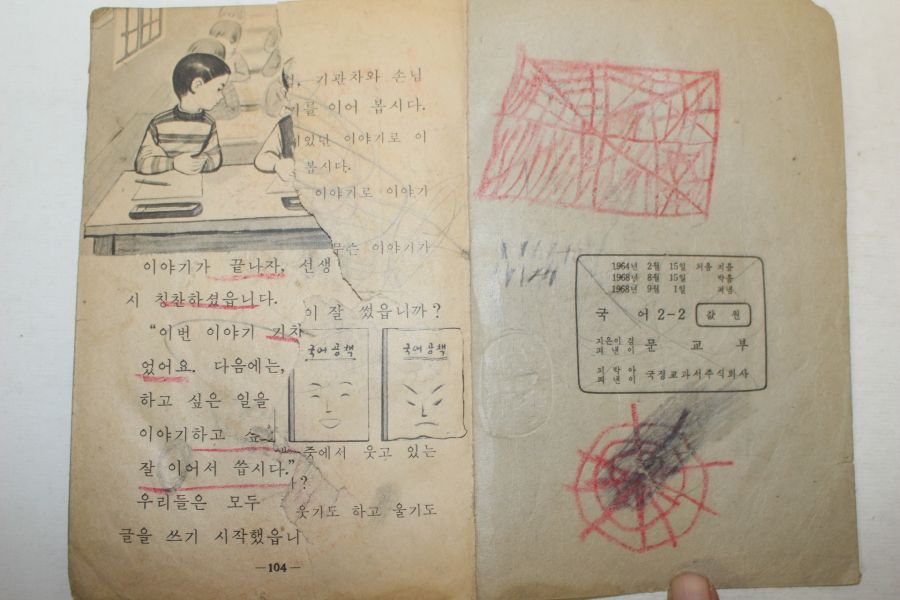 기관차와 손님
를 이어 봅시다.
있던 이야기로 이
봅시다.
이야기로 이야기
무슨 이야기가
이야기가 끝나자, 선생
시 칭찬하셨읍니다.
이 잘 썼읍니까?
"이번 이야기 기차
었어요. 다음에는,
하고 싶은 일을
이야기하고
잘 이어서 씁시다."
우리들은 모두
글을 쓰기 시작했읍니
국어 공책
국어 공책
중에서 웃고 있는
?
웃기도 하고 울기도
—104—
1964년 2월 15일 처음 지음
1968년 8월 15일 박음
1968년 9월 1일 펴냄
국 어 2-2
값 원
지은이 겸
펴낸이 문 교 부
펴낸이 국정교과서주식회사